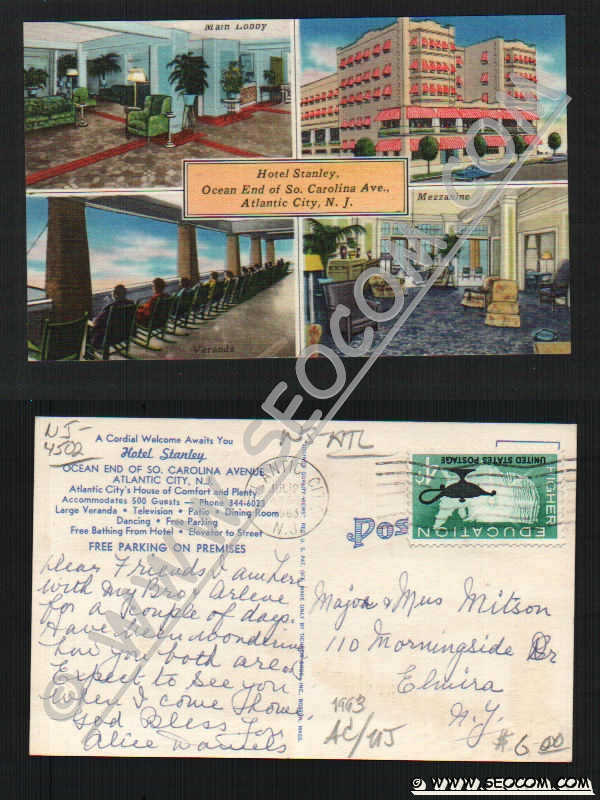 Main Lobby
Hotel Stanley,
Ocean End of So. Carolina Ave.,
Atlantic City, N. J.
Mezzanine
Veranda
© WWW.SEOCOM.COM
NJ-
4502
NJ-ATL
A Cordial Welcome Awaits You
Hotel Stanley
OCEAN END OF SO. CAROLINA AVENUE
ATLANTIC CITY, N.J.
Atlantic City's House of Comfort and Plenty
Accommodates 500 Guests — Phone 344-6023
Large Veranda • Television • Patio • Dining Room
Dancing • Free Parking
Free Bathing From Hotel • Elevator to Street
FREE PARKING ON PREMISES
ATLANTIC CITY
N.J.
Pos
4¢
UNITED STATES POSTAGE
HIGHER
EDUCATION
Dear Friends I am here
with my Bro & Arleve
for a couple of days.
Have been wondering
how you both are
Expect to see you
when I come home.
God Bless you
Alice Daniels
Major & Mrs Mitson
110 Morningside Dr
Elmira
N.Y.
1963
AC/NJ
$6.00
© WWW.SEOCOM.COM